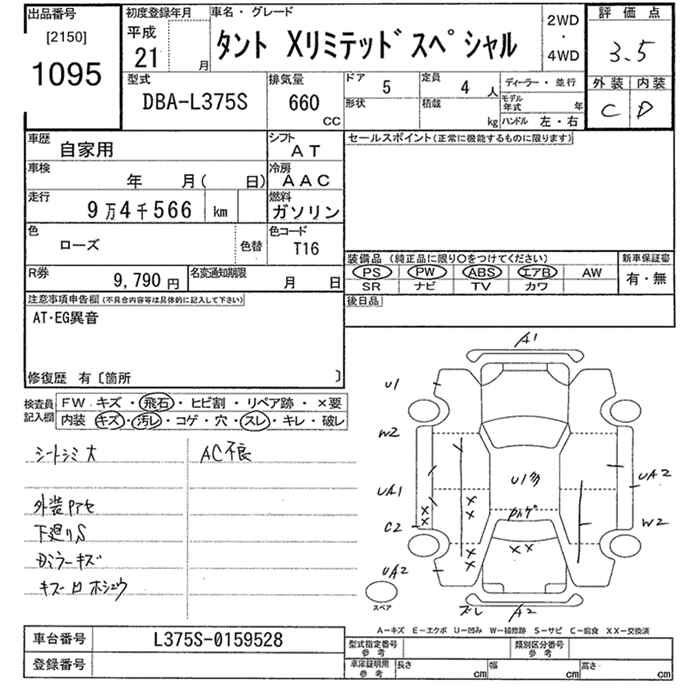 出品番号
[2150]
1095
初度登録年月
平成
21 月
車名・グレード
タント Xリミテッドスペシャル
2WD
・
4WD
評価点
3.5
外装 内装
C D
型式
DBA-L375S
排気量
660
CC
ドア 5
形状
定員 4 人
積載 kg
ディーラー・並行
モデル年式 年
ハンドル 左・右
車歴
自家用
シフト
AT
セールスポイント(正常に機能するものに限ります)
車検
年 月( 日)
冷房
AAC
走行
9万4千566 km
燃料
ガソリン
色
ローズ
色替
色コード
T16
装備品(純正品に限り○をつけてください)
PS PW ABS エアB AW
SR ナビ TV カワ
新車保証書
有・無
R券
9,790 円
名変通知期限
月 日
後日品
注意事項申告欄(不具合内容等は具体的に記入して下さい)
AT・EG異音
修復歴 有〔箇所 〕
検査員記入欄
FW キズ・飛石・ヒビ割・リペア跡・×要
内装 キズ・汚レ・コゲ・穴・スレ・キレ・破レ
シートシミ大
AC不良
外装Pアセ
下廻りS
Dミラーキズ
キズ凹ホシュウ
A1
U1
W2
UA1
C2
UA2
U1多
UA2
W2
ズレ A2
スペア
A-キズ E-エクボ U-凹み W-補修跡 S-サビ C-腐食 XX-交換済
車台番号
L375S-0159528
登録番号
型式指定番号
参考
類別区分番号
参考
車庫証明用
参考
長さ cm
幅 cm
高さ cm